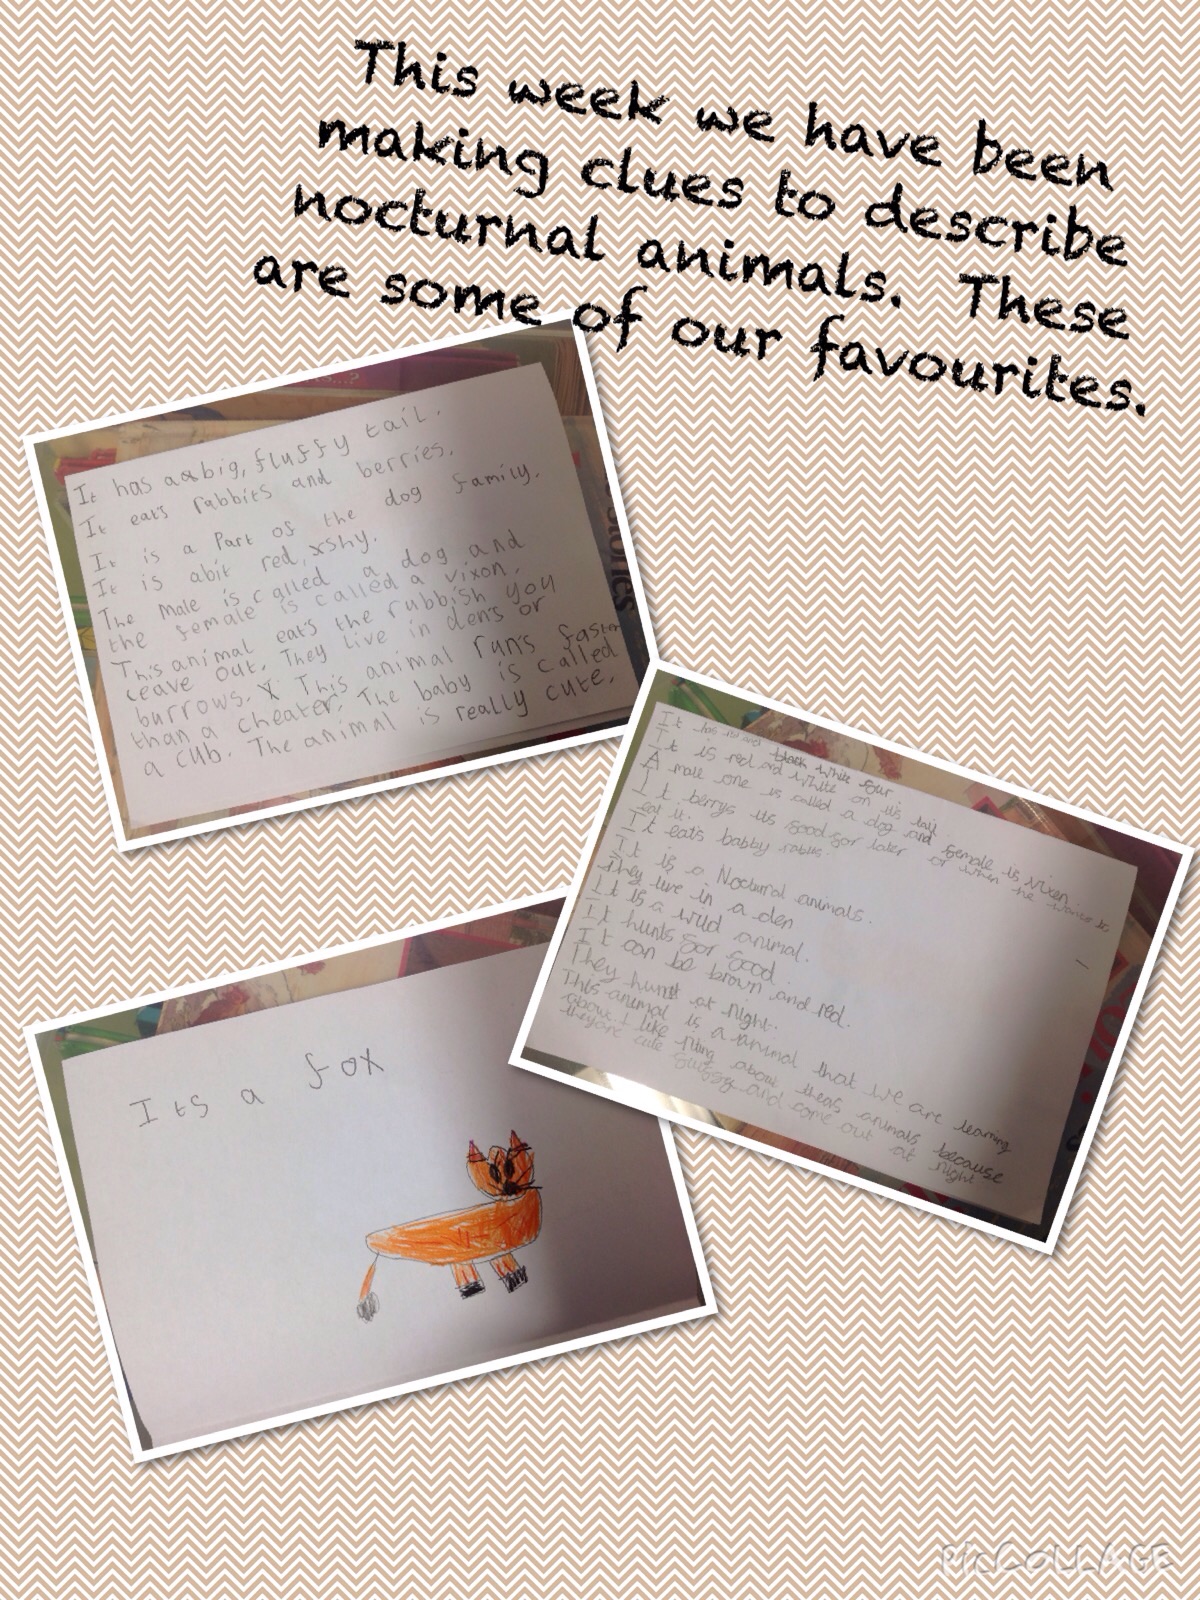 This week we have been
making clues to describe
nocturnal animals. These
are some of our favourites.
It has a big, fluffy tail.
It eats rabbits and berries.
It is a Part of the dog family.
It is abit red, shy.
The male is called a dog and
the female is called a vixon.
This animal eat's the rubbish you
leave out. They live in den's or
burrows. X This animal run's faster
than a cheater. The baby is called
a cub. The animal is really cute.
It has black white fur
It is red and white on its tail
A male one is called a dog and female is vixen
It berrys its food for later or when he wants to
eat it.
It eats babby
It is a Nocturnal animals.
They live in a den
It is a wild animal.
It hunts for food.
It can be brown and red.
They hunt at night.
This animal is a animal that we are learning
about. I like about animals because
they are cute fluffy and come out at night
Its a fox
stories
PicCOLLAGE